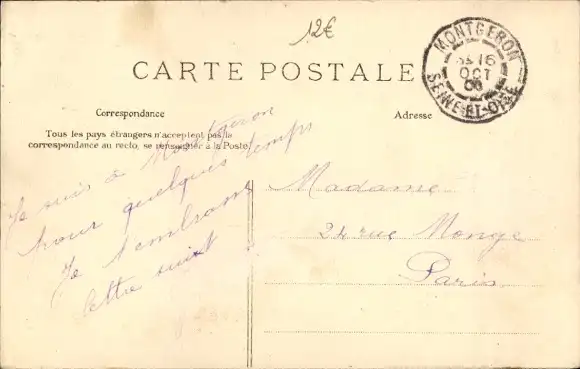 12€
CARTE POSTALE
MONTGERON
16
OCT
SEINE-ET-OISE
Correspondance
Adresse
Tous les pays étrangers n'acceptent pas la
correspondance au recto, se renseigner à la Poste.
Je suis à Montgeron
pour quelques temps
Je t'embrasse
lettre suit
Madame
24 rue Monge
Paris